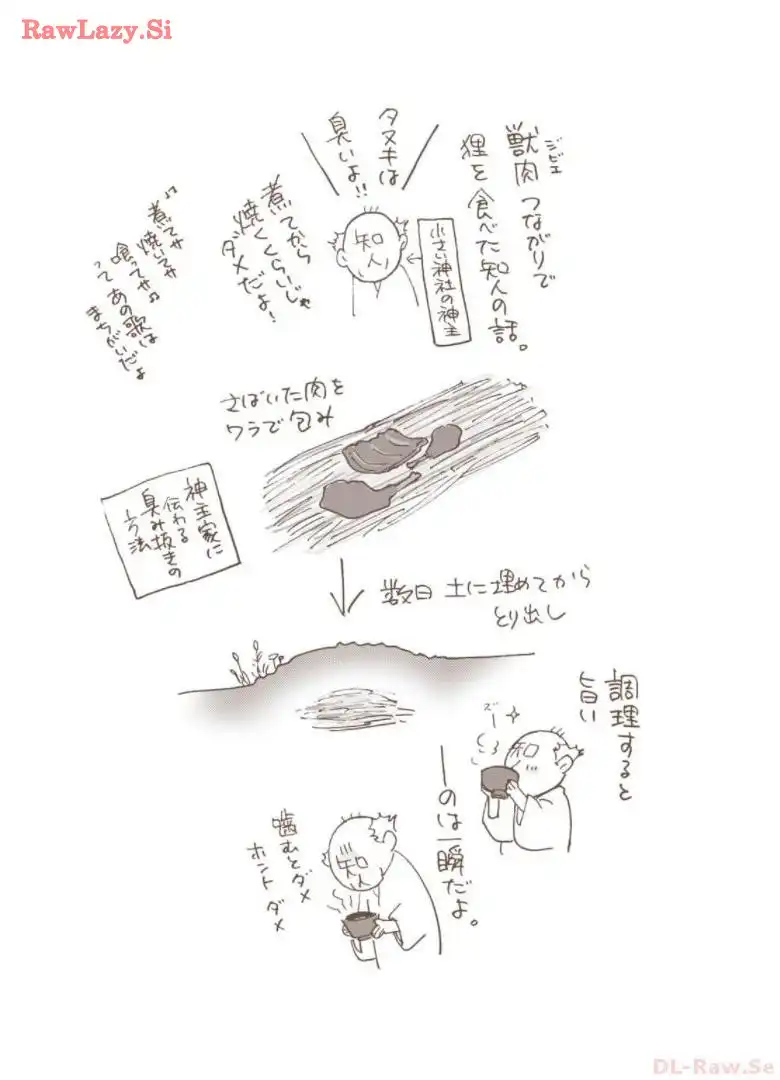 RawLazy.Si
獣肉つながりで
ジビエ
狸を食べた知人の話。
タヌキは
臭いよ!!
知人
小さい神社の神主
煮てから
焼くくらいじゃ
ダメだよ!
♪煮てサ
焼いてサ
喰ってサ♪
って あの歌は
まちがいだよ
さばいた肉を
ワラで包み
神主家に
伝わる
臭み抜きの
方法
数日 土に埋めてから
とり出し
調理すると
旨い
ズーっ
知
―のは一瞬だよ。
知人
噛むとダメ
ホント ダメ
DL-Raw.Se